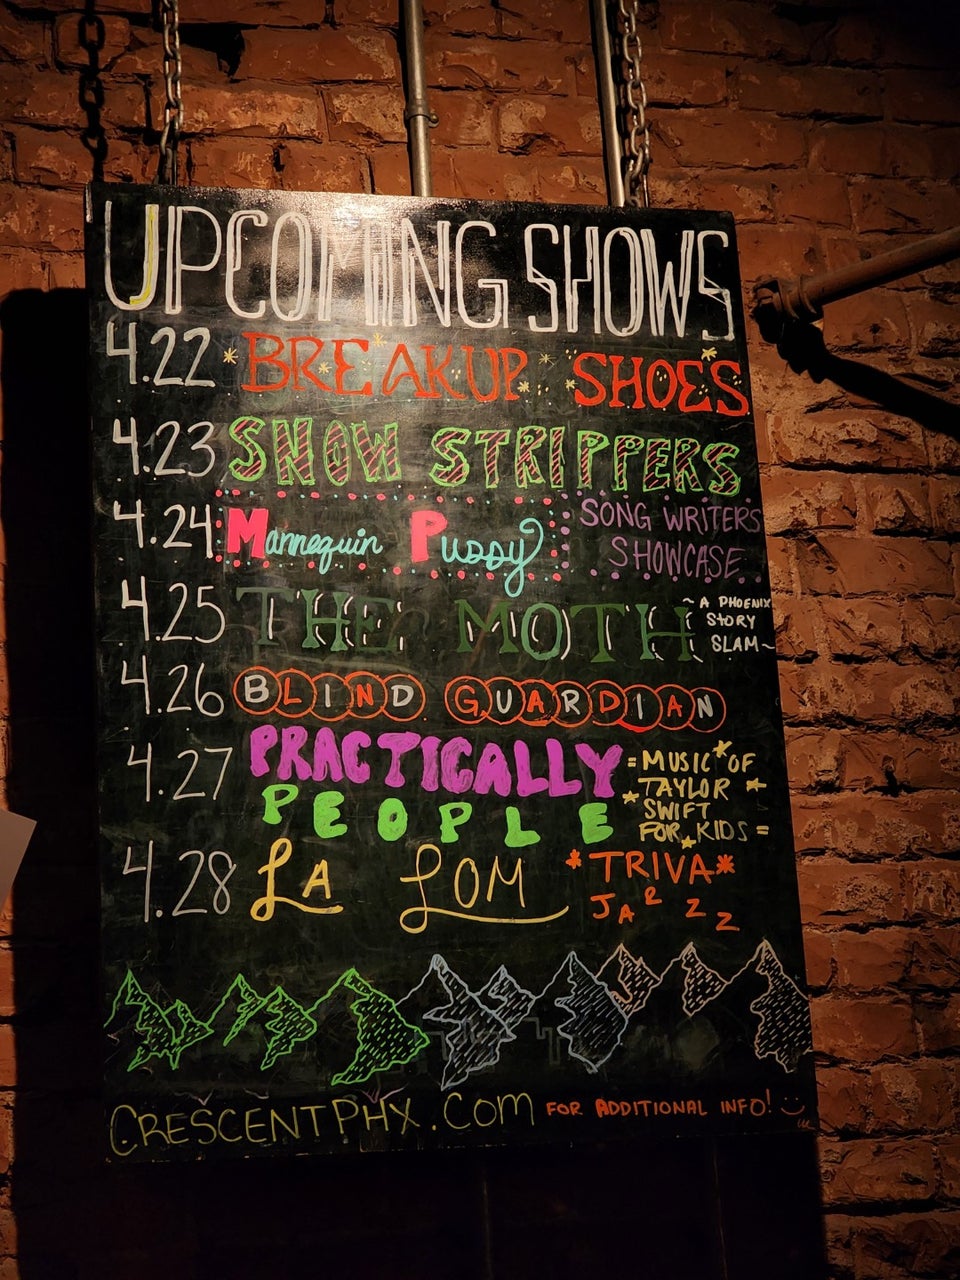 UPCOMING SHOWS
4.22 BREAKUP SHOES
4.23 SNOW STRIPPERS
4.24 Mannequin Pussy SONG WRITERS
SHOWCASE
4.25 THE MOTH ~ A PHOENIX
STORY
SLAM ~
4.26 BLIND GUARDIAN
4.27 PRACTICALLY
PEOPLE
= MUSIC OF
TAYLOR
SWIFT
FOR KIDS =
4.28 LA LOM *TRIVA*
JARZZ
CRESCENTPHX.COM FOR ADDITIONAL INFO!